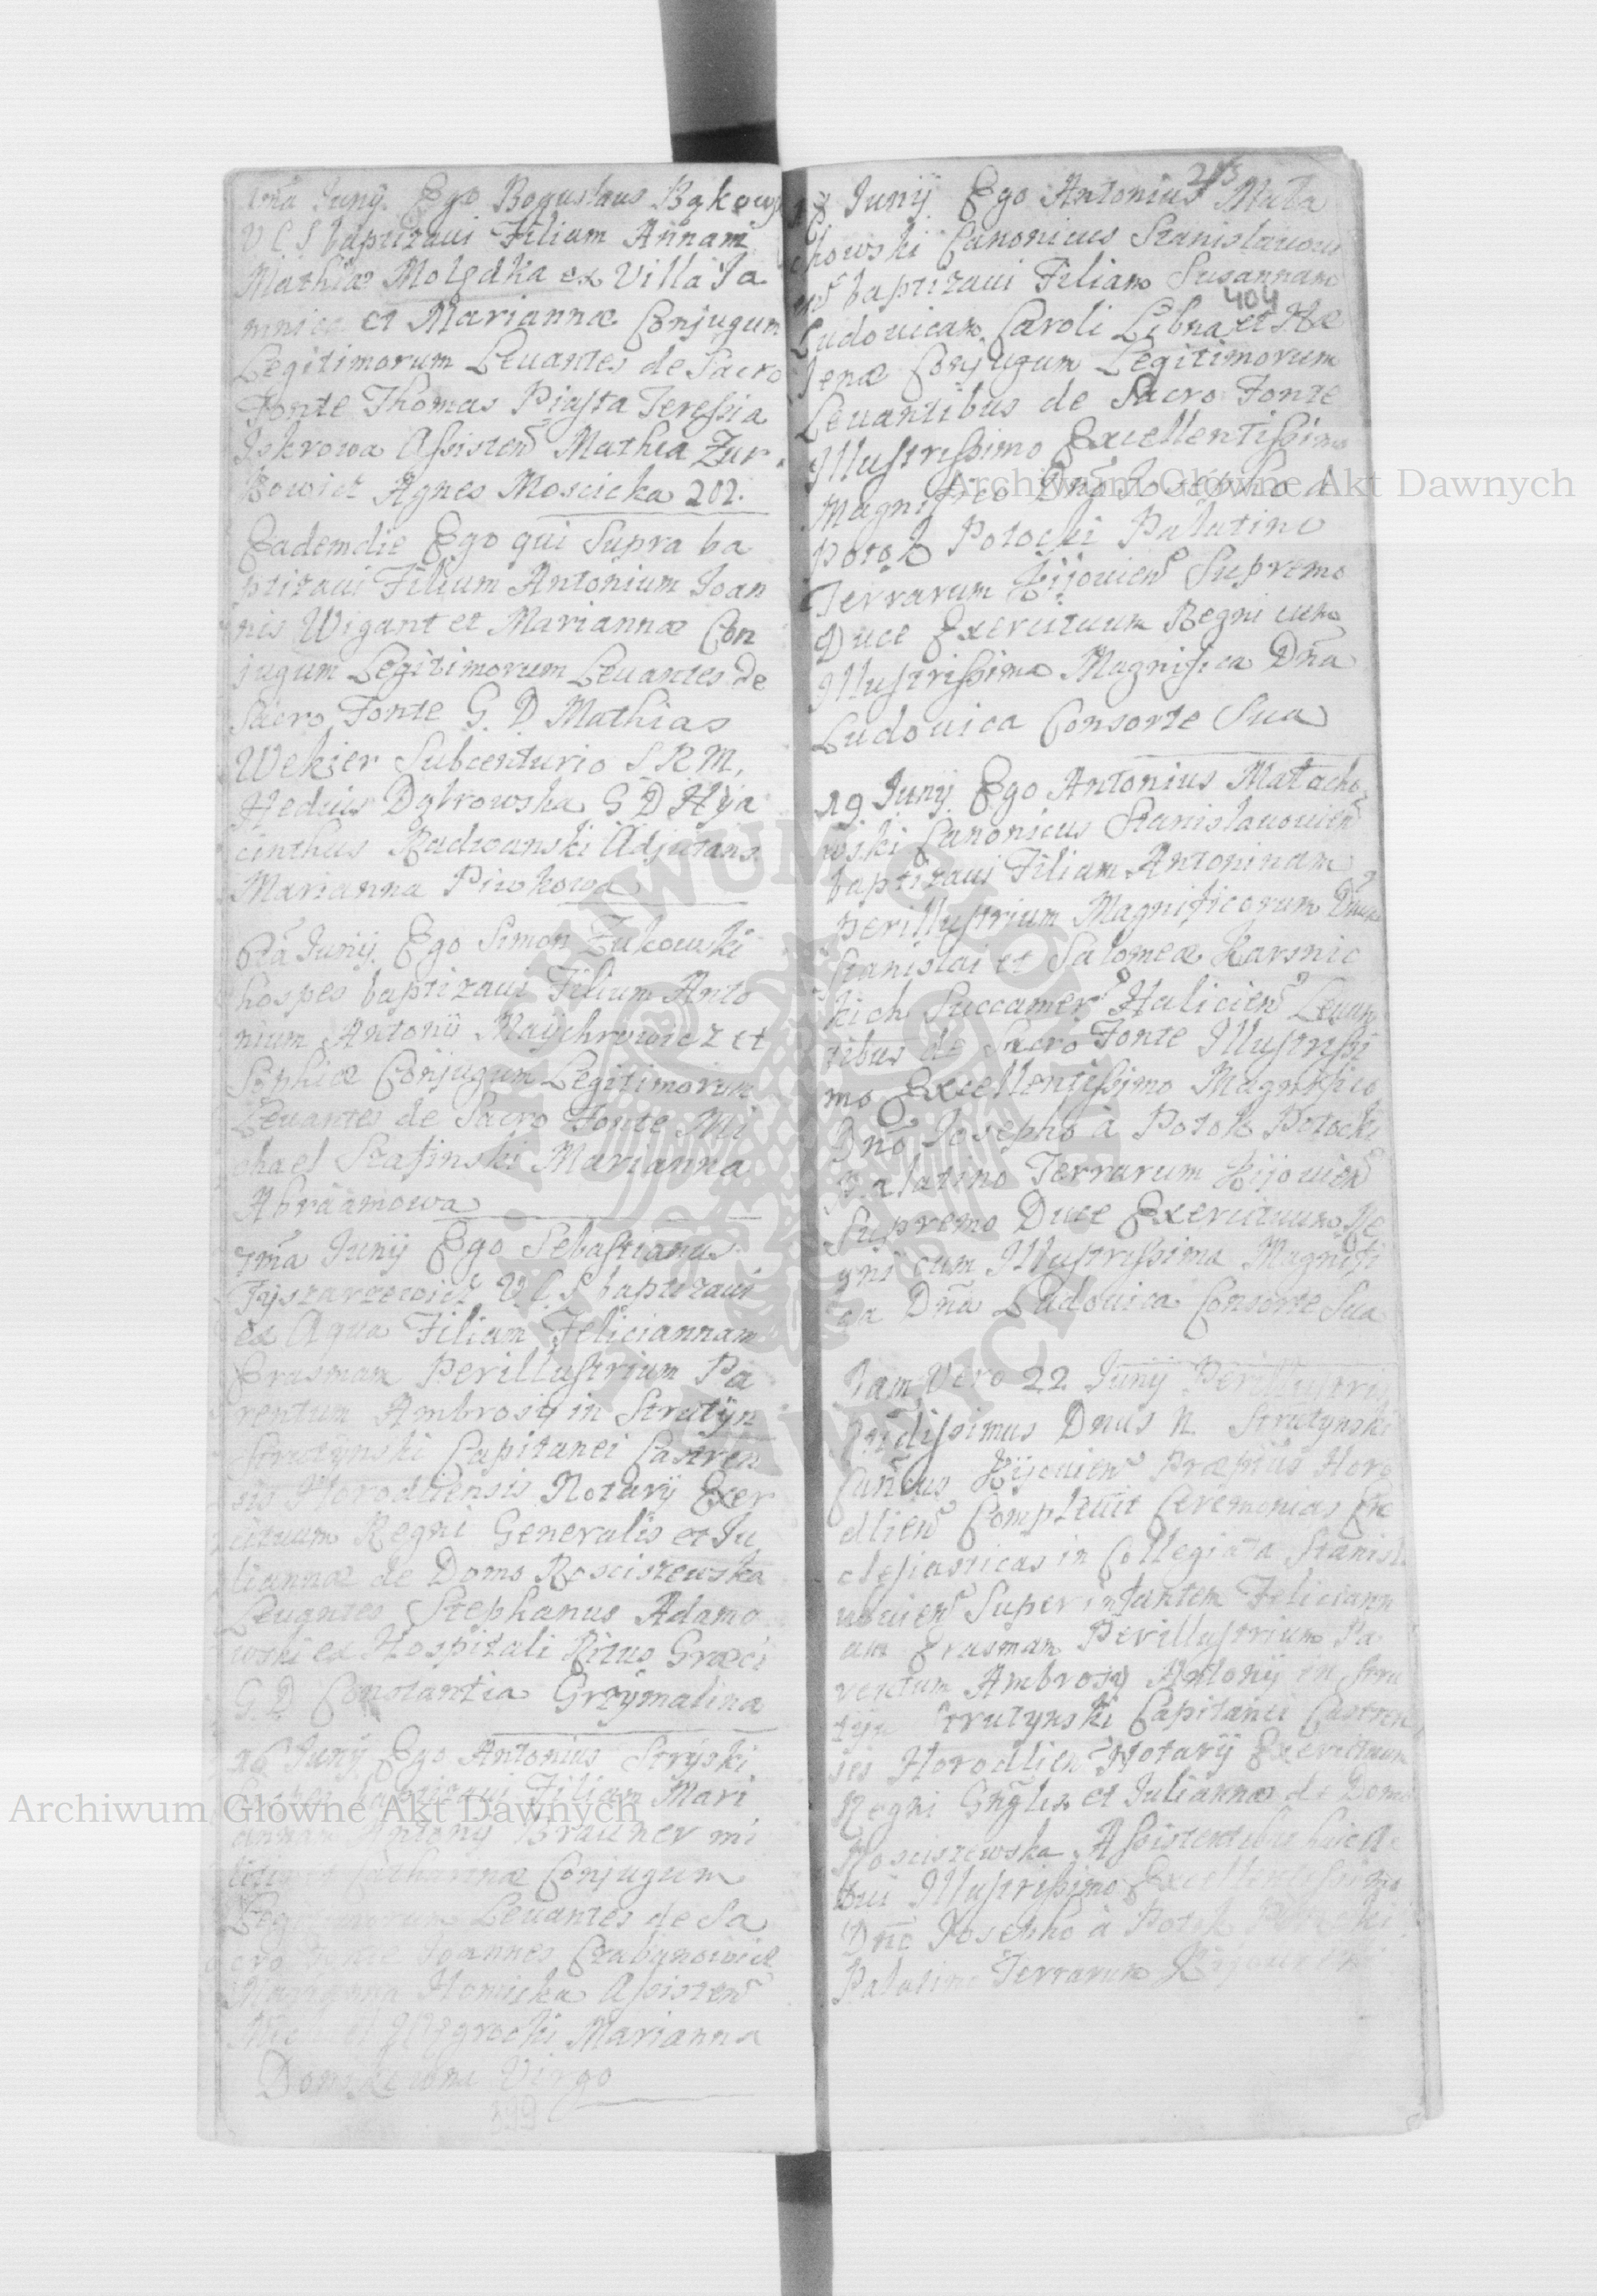 1ma Junij. Ego Boguslaus Bąkows
V C S baptizaui Filiam Annam
Mathiæ Molędka ex Villa Ja
mnica et Mariannæ Conjugum
Legitimorum Levantes de Sacro
Fonte Thomas Piasta Teressia
Iskrowa Assisten Mathia Zur
kowicz Agnes Moscicka 202.
Eademdie Ego qui Supra ba
ptizaui Filium Antonium Joan
nis Wigant et Mariannæ Con
jugum Legitimorum Levantes de
Sacro Fonte G. D Mathias
Wekier Subcenturio S R M,
Hedvis Dąbrowska G D Hya
cinthus Radwanski Adjutans
Marianna Piwkowa
6ta Junij. Ego Simon Żukowski
hospes baptizaui Filium Anto
nium Antonij Maychrowicz et
Sophiæ Conjugum Legitimorum
Levantes de Sacro Fonte Mi
chael Stasinski Marianna
Abraamowa
7ma Junij Ego Sebastianus
V C S baptizaui
ex Aqua Filiam Feliciannam
Erasmam Perillustrium Pa
rentum Ambrosij in Strutÿn
Strutÿnski Capitanei Castren
sis Horodliensis Notarij Exer
cituum Regni Generalis et Ju
liannæ de Domo Roscistewska
Levantes Stephanus Adamo
wski ex Hospitali Ritus Græci
G. D. Constantia Grzÿmalina
16 Junij Ego Antonius Strÿski
hospes baptizaui Filiam Mari
annam Antonij Brauner mi
litis et Catharinæ Conjugum
Legitimorum Levantes de Sa
cro Fonte Joannes Czabanowicz
Homicka Assisten
Marianna
Virgo
399
203
18 Junij Ego Antonius Mała
chowski Canonicus Stanislauoui
ens baptizaui Filiam Susannam
404
Ludouicam Caroli Libna et He
lenæ Conjugum Legitimorum
Levantibus de Sacro Fonte
Illustrissimo Excellentissimo
Magnifico Dno Josepho à
Potok Potocki Palatino
Terrarum Kijouien Supremo
Duce Exercituum Regni cum
Illustrissima Magnifica Dna
Ludouica Consorte Sua
19 Junij Ego Antonius Małacho
wski Canonicus Stanislauouien
baptizaui Filiam Antoninam
perillustrium Magnificorum Dnorum
Stanislai et Salomeæ Karsnic
kich Succamer Halicien Levan
tibus de Sacro Fonte Illustrissi
mo Excellentissimo Magnifico
Dno Josepho à Potok Potocki
Palatino Terrarum Kijouien
Supremo Duce Exercituum Re
gni cum Illustrissima Magnifi
ca Dna Ludouica Consorte Sua
Jam Vero 22 Junij Perillustris
Rndissimus Dnus N. Strutynski
Cancus Kijouien Præptus Horo
dlien Compleuit Ceremonias Ec
clesiasticas in Collegiata Stanisl
auouien Super infantem Feliciann
am Erasmam Perillustrium Pa
rentum Ambrosij Antonij in Stru
tÿn Strutynski Capitanei Castren
sis Horodlien Notarij Exercituum
Regni Gnglis et Juliannæ de Domo
Rosciszewska Assistentibus huic A
ctui Illustrissimo Excellentissimo
Dno Josepho à Potok Potocki
Palatino Terrarum Kijouien
Archiwum Główne Akt Dawnych
Archiwum Główne Akt Dawnych